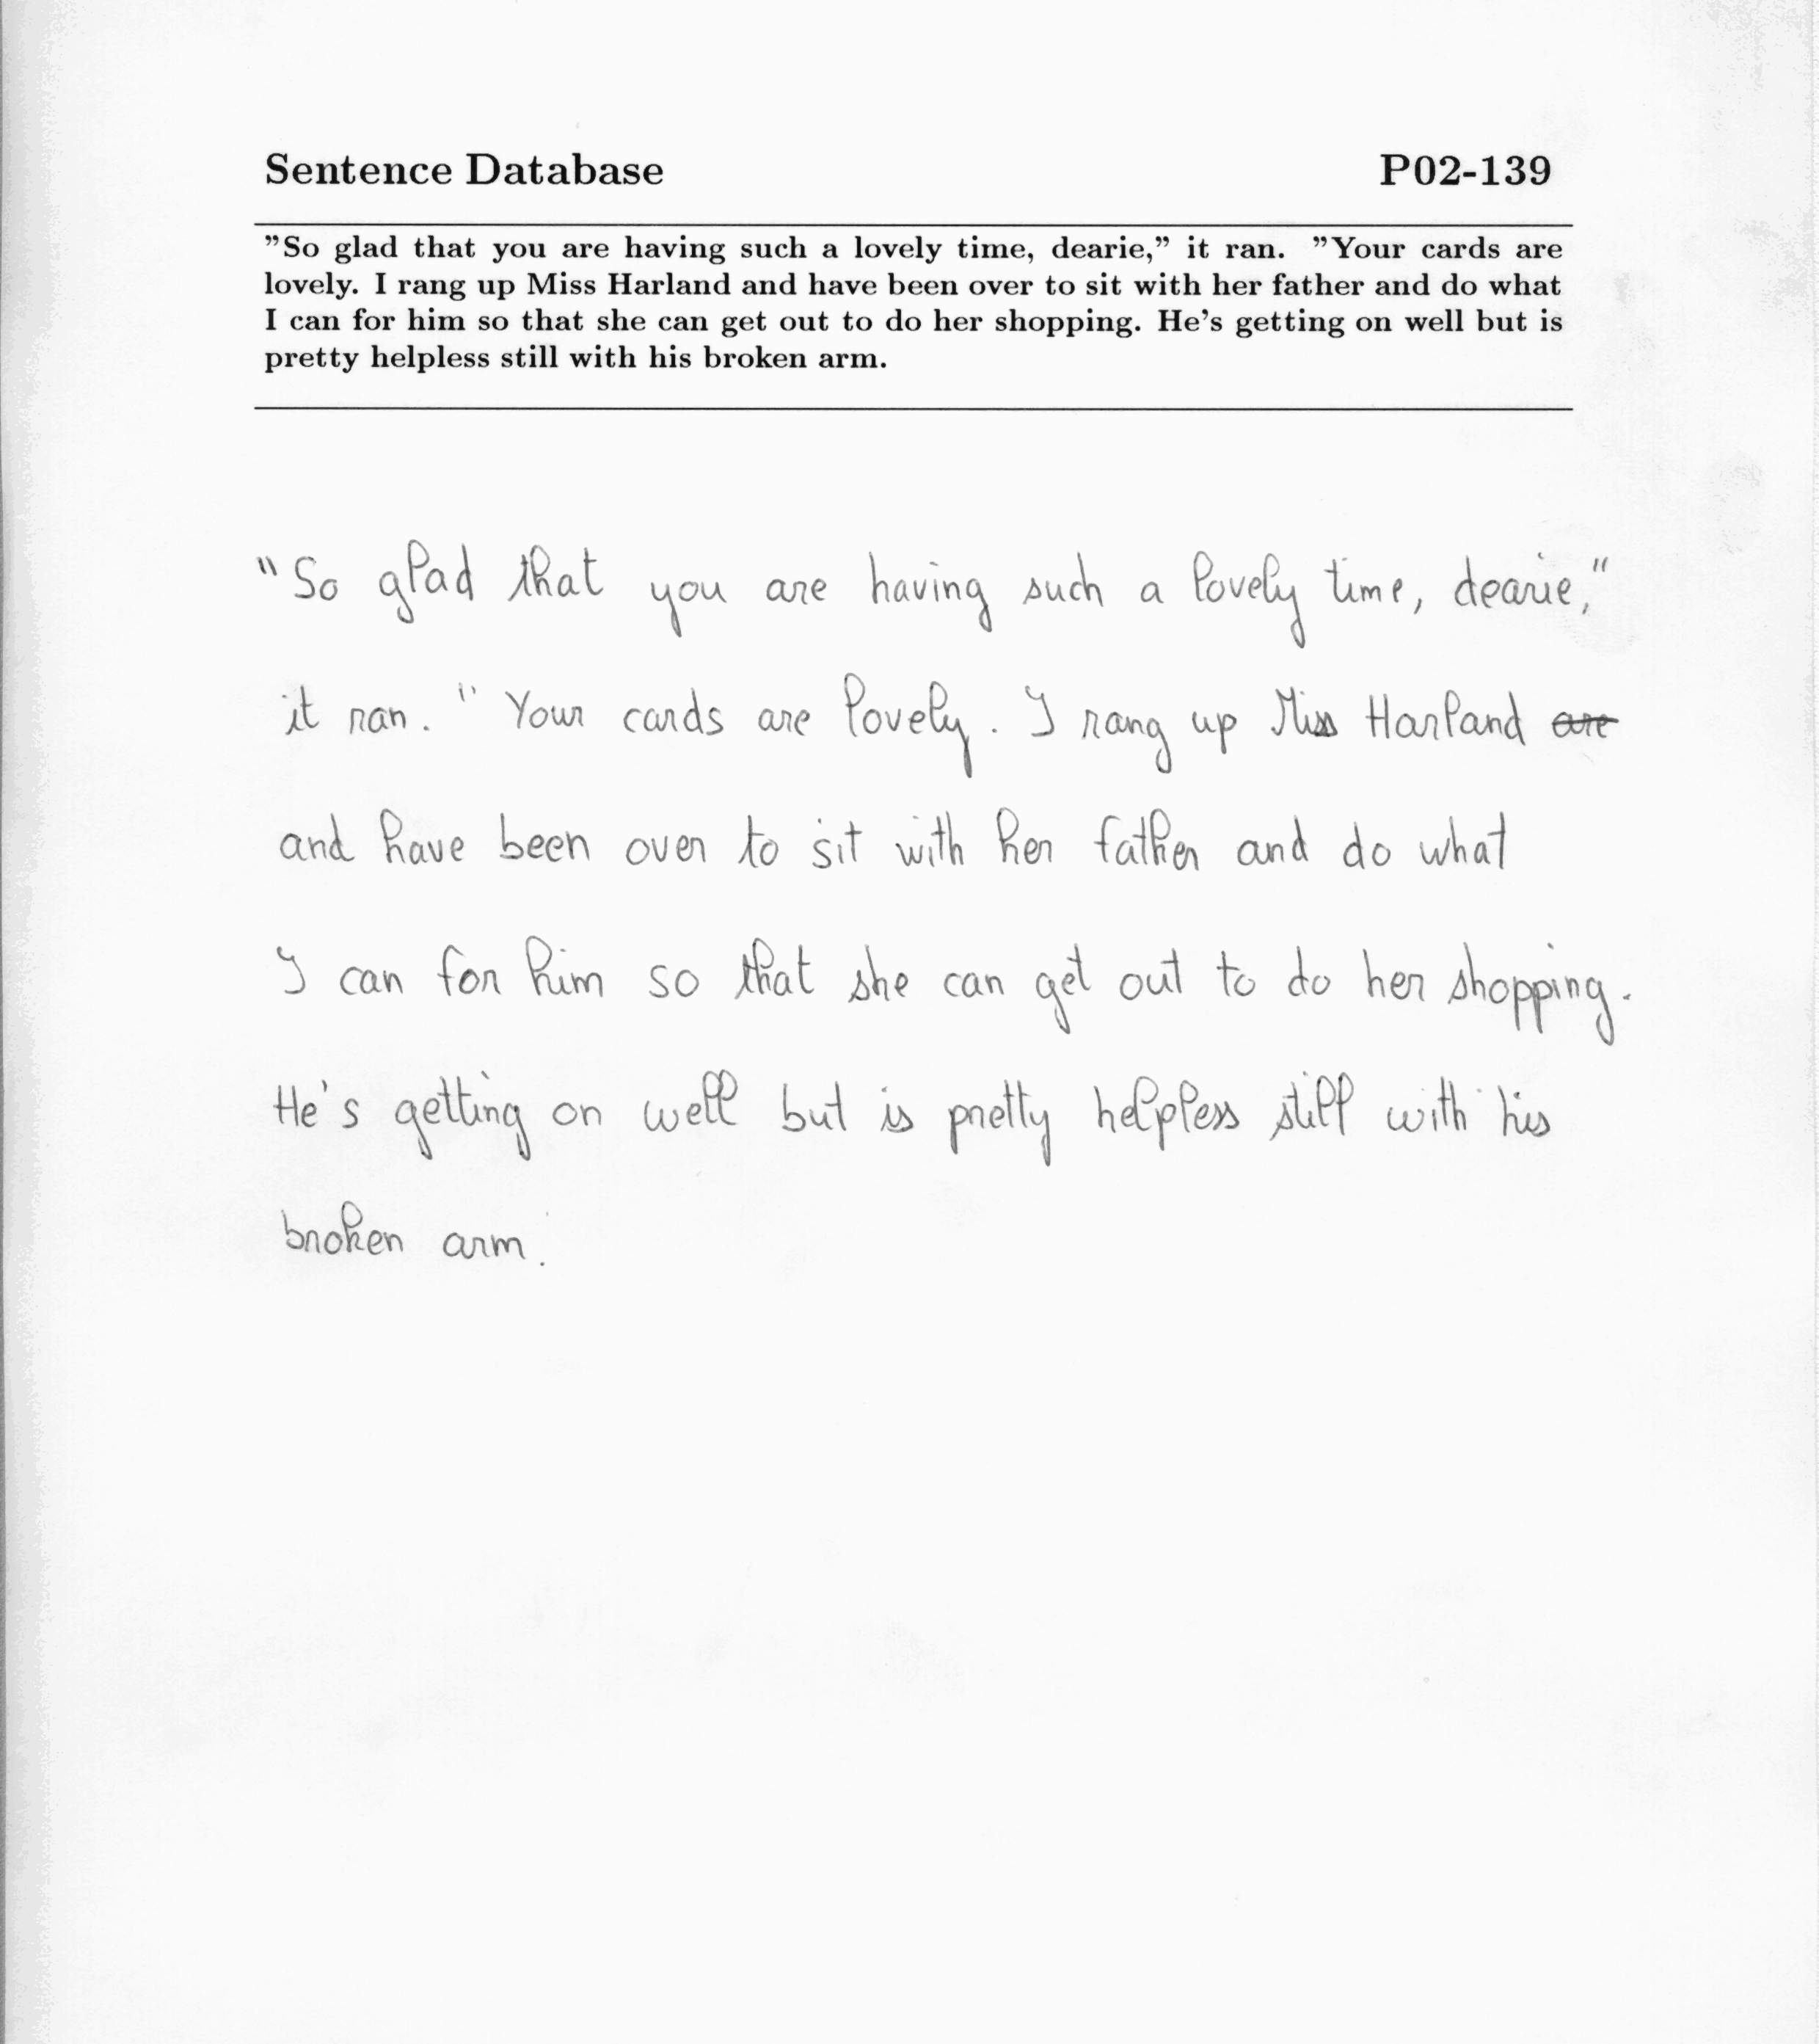 Sentence Database P02-139
"So glad that you are having such a lovely time, dearie," it ran. "Your cards are
lovely. I rang up Miss Harland and have been over to sit with her father and do what
I can for him so that she can get out to do her shopping. He's getting on well but is
pretty helpless still with his broken arm.
"So glad that you are having such a lovely time, dearie,"
it ran. "Your cards are lovely. I rang up Miss Harland are
and have been over to sit with her father and do what
I can for him so that she can get out to do her shopping.
He's getting on well but is pretty helpless still with his
broken arm.